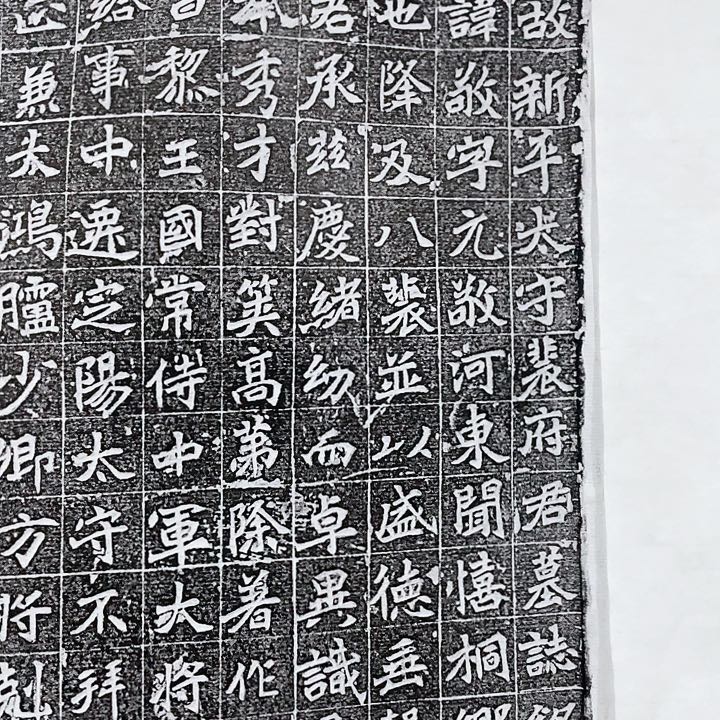 故新平太守裴府君墓誌
諱敬字元敬河東聞憘桐鄉
也降及八裴並以盛德垂
承茲慶緒幼而卓異識
秀才對筞高第除著作
黎王國常侍中軍大將
給事中遷定陽太守不拜
兼太鴻臚少卿方將剋